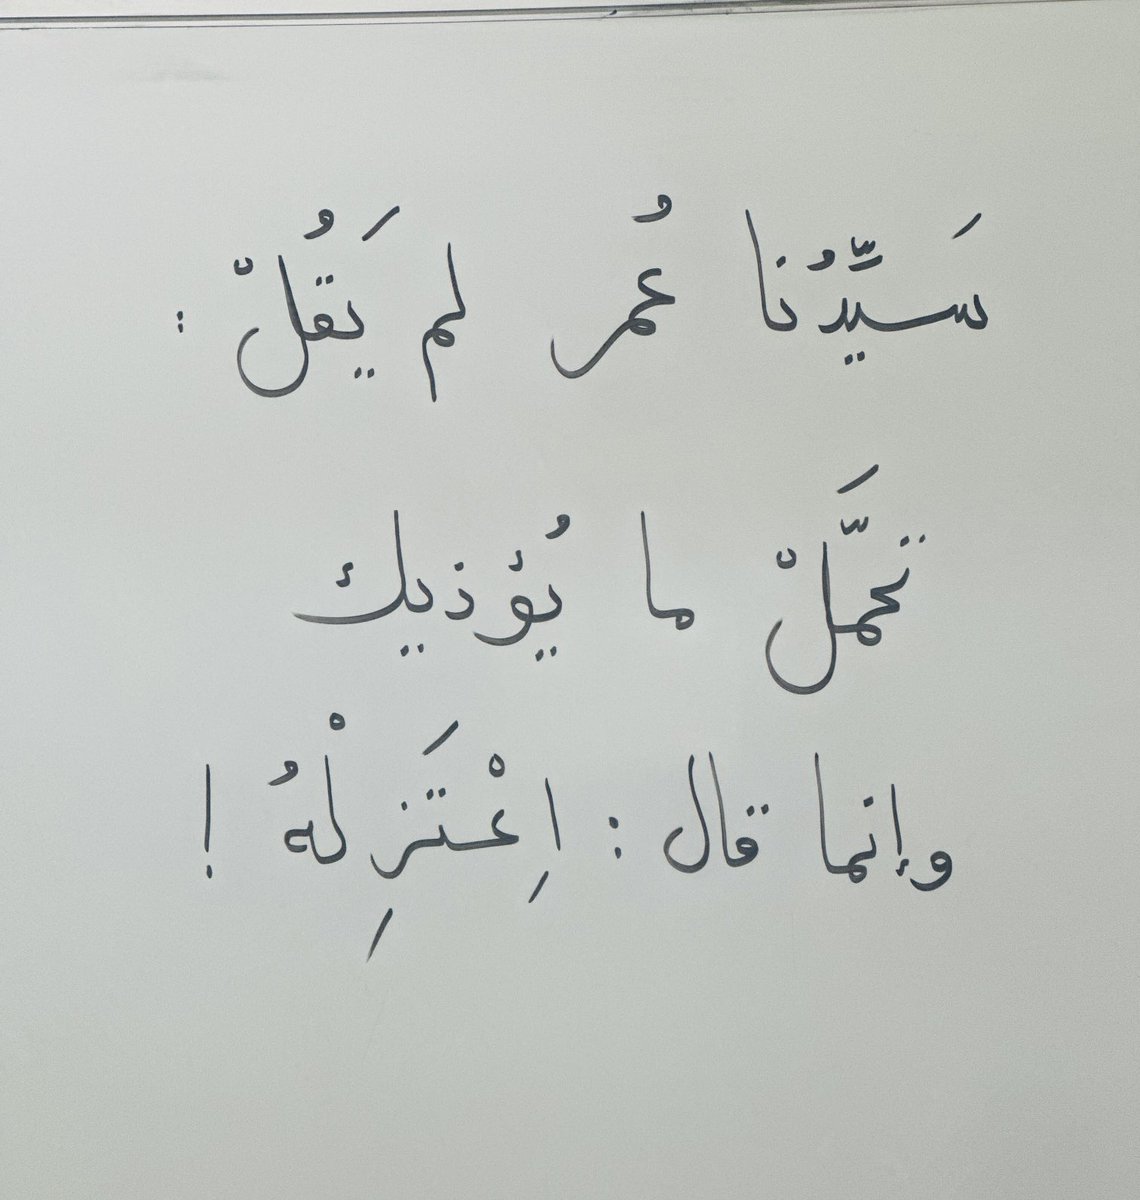 سَيِّدُنا عُمر لم يَقُلْ :
تحمَّلْ ما يُؤذيك
وإنما قال : اِعْتَزِلْهُ !